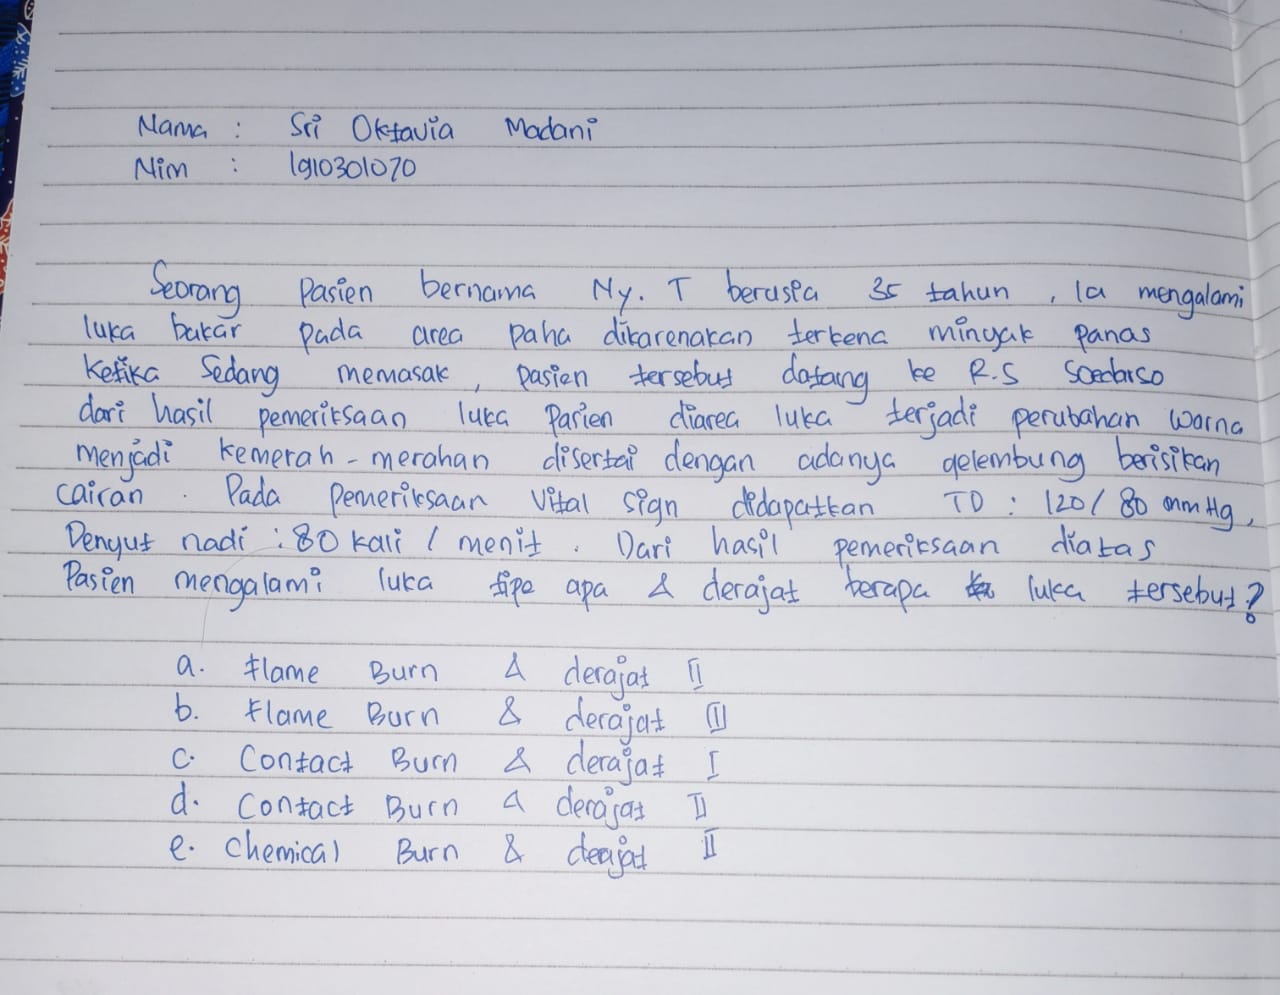 Nama : Sri Oktavia Madani
Nim : 1910301070
Seorang Pasien bernama Ny. T berusia 35 tahun , Ia mengalami
luka bakar pada area paha dikarenakan terkena minyak panas
Ketika Sedang memasak , pasien tersebut datang ke R.S Soedarso
dari hasil pemeriksaan luka Pasien diarea luka terjadi perubahan warna
menjadi kemerah-merahan disertai dengan adanya gelembung berisikan
cairan . Pada pemeriksaan Vital Sign didapatkan TD : 120 / 80 mmHg,
Denyut nadi : 80 kali / menit . Dari hasil pemeriksaan diatas
Pasien mengalami luka tipe apa & derajat berapa luka tersebut?
a. Flame Burn & derajat II
b. Flame Burn & derajat III
c. Contact Burn & derajat I
d. Contact Burn & derajat II
e. Chemical Burn & derajat II